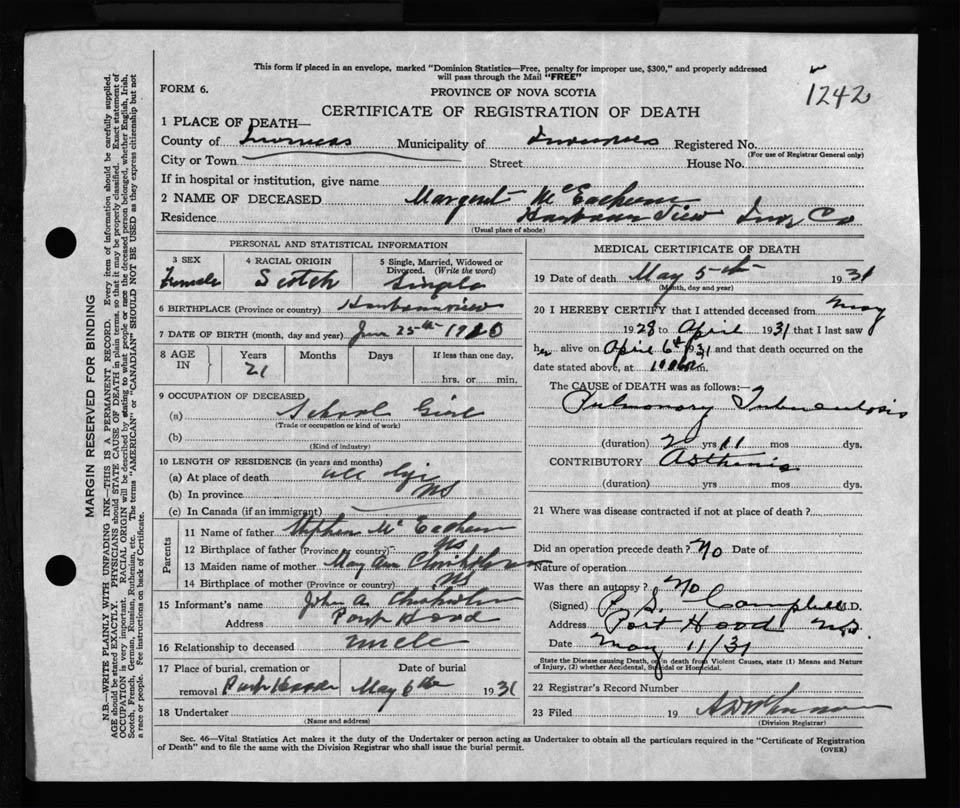 This form if placed in an envelope, marked "Dominion Statistics—Free, penalty for improper use, $300," and properly addressed
will pass through the Mail "FREE"
1242
FORM 6.
PROVINCE OF NOVA SCOTIA
CERTIFICATE OF REGISTRATION OF DEATH
1 PLACE OF DEATH—
County of Inverness Municipality of Inverness Registered No.
(For use of Registrar General only)
City or Town Street House No.
If in hospital or institution, give name
2 NAME OF DECEASED Margaret McEachern
Residence Harbour View Inv Co
(Usual place of abode)
PERSONAL AND STATISTICAL INFORMATION
3 SEX Female
4 RACIAL ORIGIN Scotch
5 Single, Married, Widowed or Divorced. (Write the word) Single
6 BIRTHPLACE (Province or country) Harbourview
7 DATE OF BIRTH (month, day and year) 25th 1910
8 AGE IN Years Months Days If less than one day,
21 hrs. or min.
9 OCCUPATION OF DECEASED
(a) School Girl
(Trade or occupation or kind of work)
(b)
(Kind of industry)
10 LENGTH OF RESIDENCE (in years and months)
(a) At place of death all life
(b) In province NS
(c) In Canada (if an immigrant)
Parents
11 Name of father Stephen McEachern
12 Birthplace of father (Province or country) NS
13 Maiden name of mother Mary Ann Chisholm
14 Birthplace of mother (Province or country) NS
15 Informant's name John A. Chisholm
Address Port Hood
16 Relationship to deceased uncle
17 Place of burial, cremation or removal Port Hood
Date of burial May 6th 1931
18 Undertaker
(Name and address)
MEDICAL CERTIFICATE OF DEATH
19 Date of death May 5th 1931
(Month, day and year)
20 I HEREBY CERTIFY that I attended deceased from May
1928 to April 1931 that I last saw
her alive on April 6th 1931 and that death occurred on the
date stated above, at m.
The CAUSE OF DEATH was as follows:—
Pulmonary Tuberculosis
(duration) 2 yrs 11 mos dys.
CONTRIBUTORY Asthenia
(duration) yrs. mos. dys.
21 Where was disease contracted if not at place of death?
Did an operation precede death? No Date of
Nature of operation
Was there an autopsy? No
(Signed) P. S. Campbell M.D.
Address Port Hood N.S.
Date May 11/31
State the Disease causing Death, or in death from Violent Causes, state (1) Means and Nature
of Injury, (2) whether Accidental, Suicidal or Homicidal.
22 Registrar's Record Number
23 Filed 19
(Division Registrar)
Sec. 46—Vital Statistics Act makes it the duty of the Undertaker or person acting as Undertaker to obtain all the particulars required in the "Certificate of Registration
of Death" and to file the same with the Division Registrar who shall issue the burial permit.
(OVER)
MARGIN RESERVED FOR BINDING
N.B.—WRITE PLAINLY WITH UNFADING INK—THIS IS A PERMANENT RECORD. Every item of information should be carefully supplied.
AGE should be stated EXACTLY. PHYSICIANS should STATE CAUSE OF DEATH in plain terms, so that it may be properly classified. Exact statement of
OCCUPATION is very important. RACIAL ORIGIN will be described by stating to what people or race the deceased person belonged, whether English, Irish,
Scotch, French, German, Russian, Ruthenian, etc. The terms "AMERICAN" or "CANADIAN" SHOULD NOT BE USED as they express citizenship but not
a race or people. See instructions on back of Certificate.